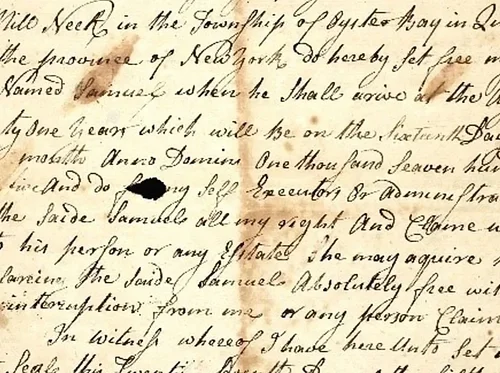 Mill Neck in the Township of Oyster Bay in Qu
the province of New York do hereby Set free m
Named Samuel when he Shall arive at the
ty One Years which will be on the Sixteenth Da
month Anno Domini One thousand Seaven hun
five And do for my Self Executors Or administra
the Saide Samuel all my right And Claime
his person or any Estate She may aquire
clareing the Saide Samuel Absolutely free wit
interruption from me or any person Claim
In witness whereof I have here Unto Set
Seale this Twenti